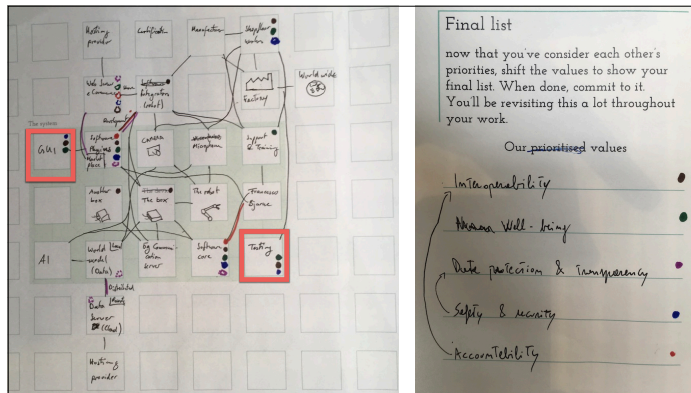 Hosting
provider
Certification
Manufacturer
Shopfloor
worker
Web Server
eCommerce
Software
Integration
(host)
Factory
World wide
Development
The system
GUI
Software
Plugins
Market
place
camera
Microphone
Support
& Training
Another
box
The box
The robot
Francesco
AI
World
model
(Data)
Local
Software
core
Testing
Distributed
Data
Server
(Cloud)
Hosting
provider
Final list
now that you've consider each other's
priorities, shift the values to show your
final list. When done, commit to it.
You'll be revisiting this a lot throughout
your work.
Our prioritised values
Interoperability
Human Well-being
Data protection & Transparency
Safety & security
Accountability